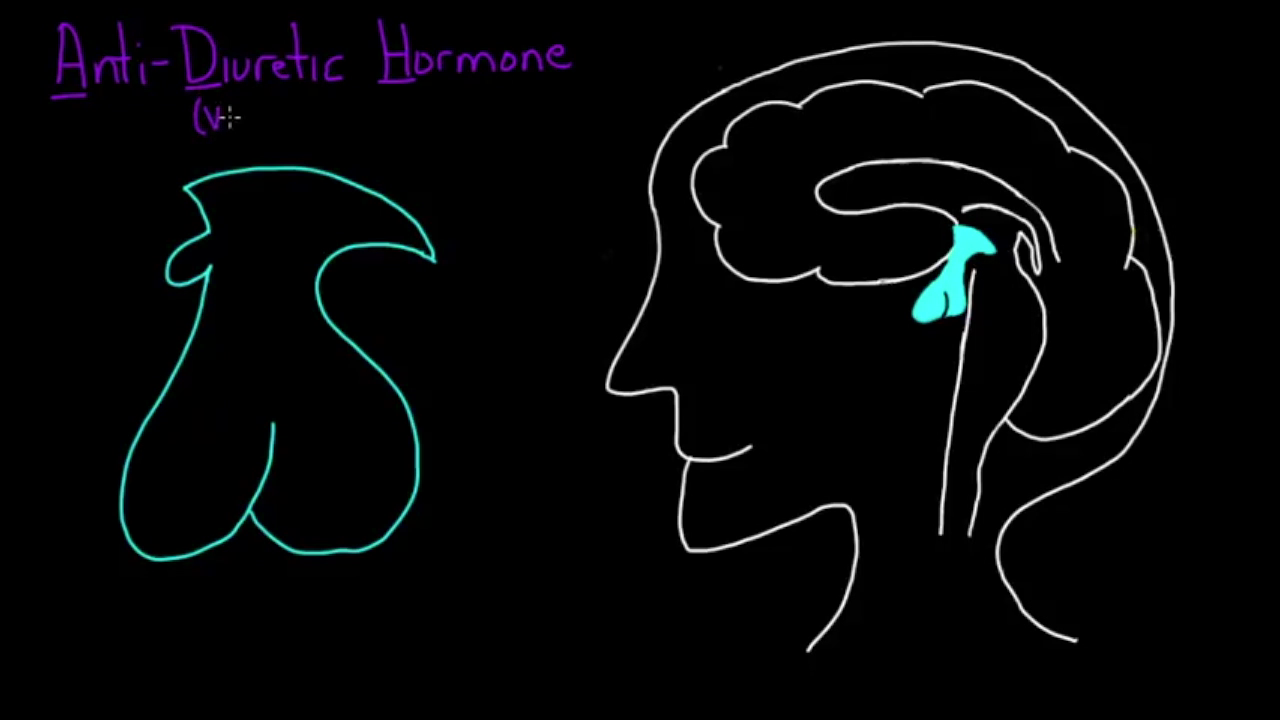 Anti-Diuretic Hormone
(V